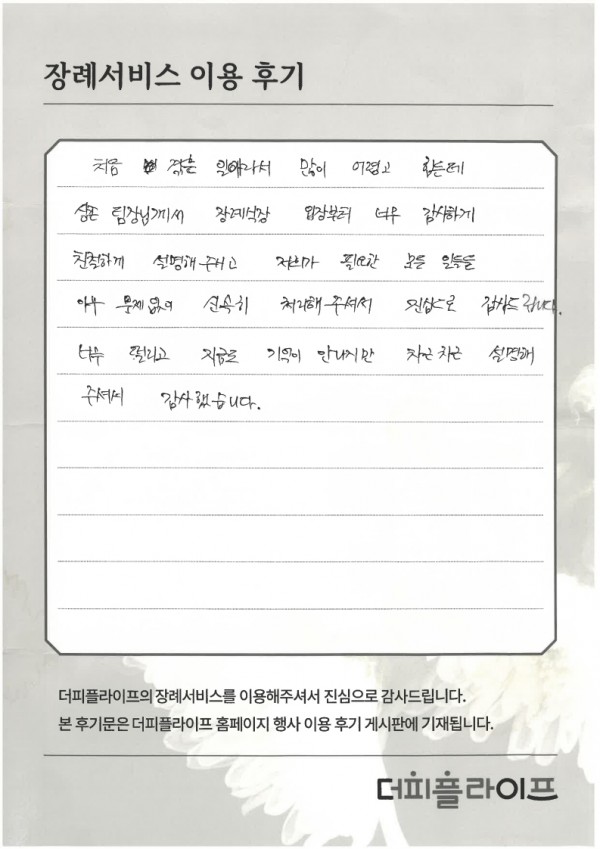 장례서비스 이용 후기
처음 겪은 일이라서 많이 어렵고 힘든데
팀장님께서 장례식장 입장부터 너무 감사하게
친절하게 설명해주시고 저희가 필요한 모든 일들을
아무 문제 없이 신속히 처리해주셔서 진심으로 감사드립니다.
너무 떨리고 지금도 기억이 안나지만 차근차근 설명해
주셔서 감사했습니다.
더피플라이프의 장례서비스를 이용해주셔서 진심으로 감사드립니다.
본 후기문은 더피플라이프 홈페이지 행사 이용 후기 게시판에 기재됩니다.
더피플라이프